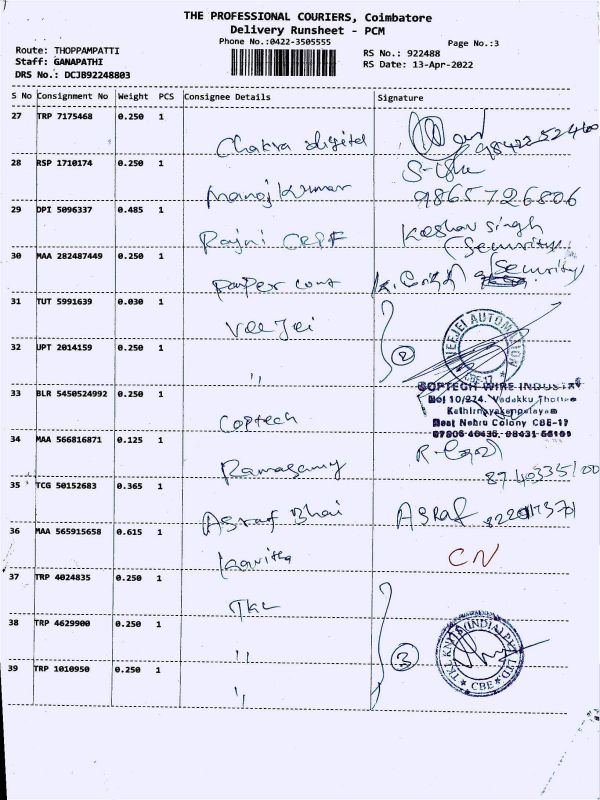 THE PROFESSIONAL COURIERS, Coimbatore
Delivery Runsheet - PCM
Phone No.:0422-3505555
Page No.:3
Route: THOPPAMPATTI
RS No.: 922488
Staff: GANAPATHI
RS Date: 13-Apr-2022
DRS No.: DCJB92248803
S No Consignment No Weight PCS Consignee Details Signature
27 TRP 7175468 0.250 1
Chakra digital
28 RSP 1710174 0.250 1
Manoj Kumar 9865726806
29 DPI 5096337 0.485 1
Rajni CRPF Keshav Singh
(Security)
30 MAA 282487449 0.250 1
Paper cont (Security)
31 TUT 5991639 0.030 1
VeeJei
VEEJEI AUTOMATION
CBE-17
32 UPT 2014159 0.250 1
" 2
COPTECH WIRE INDUSTRY
No: 10/274, Vadakku Thottam
Kathirnayakanpalayam
Near Nehru Colony CBE-17
33 BLR 5450524992 0.250 1
Coptech
34 MAA 566816871 0.125 1
Ramasamy
35 TCG 50152683 0.365 1
Asraf Bhai Asraf
36 MAA 565915658 0.615 1
Kavitha CN
37 TRP 4024835 0.250 1
TKL
38 TRP 4629900 0.250 1
" 3
TKL KNITS (INDIA) PVT. LTD.
CBE
39 TRP 1010950 0.250 1
"